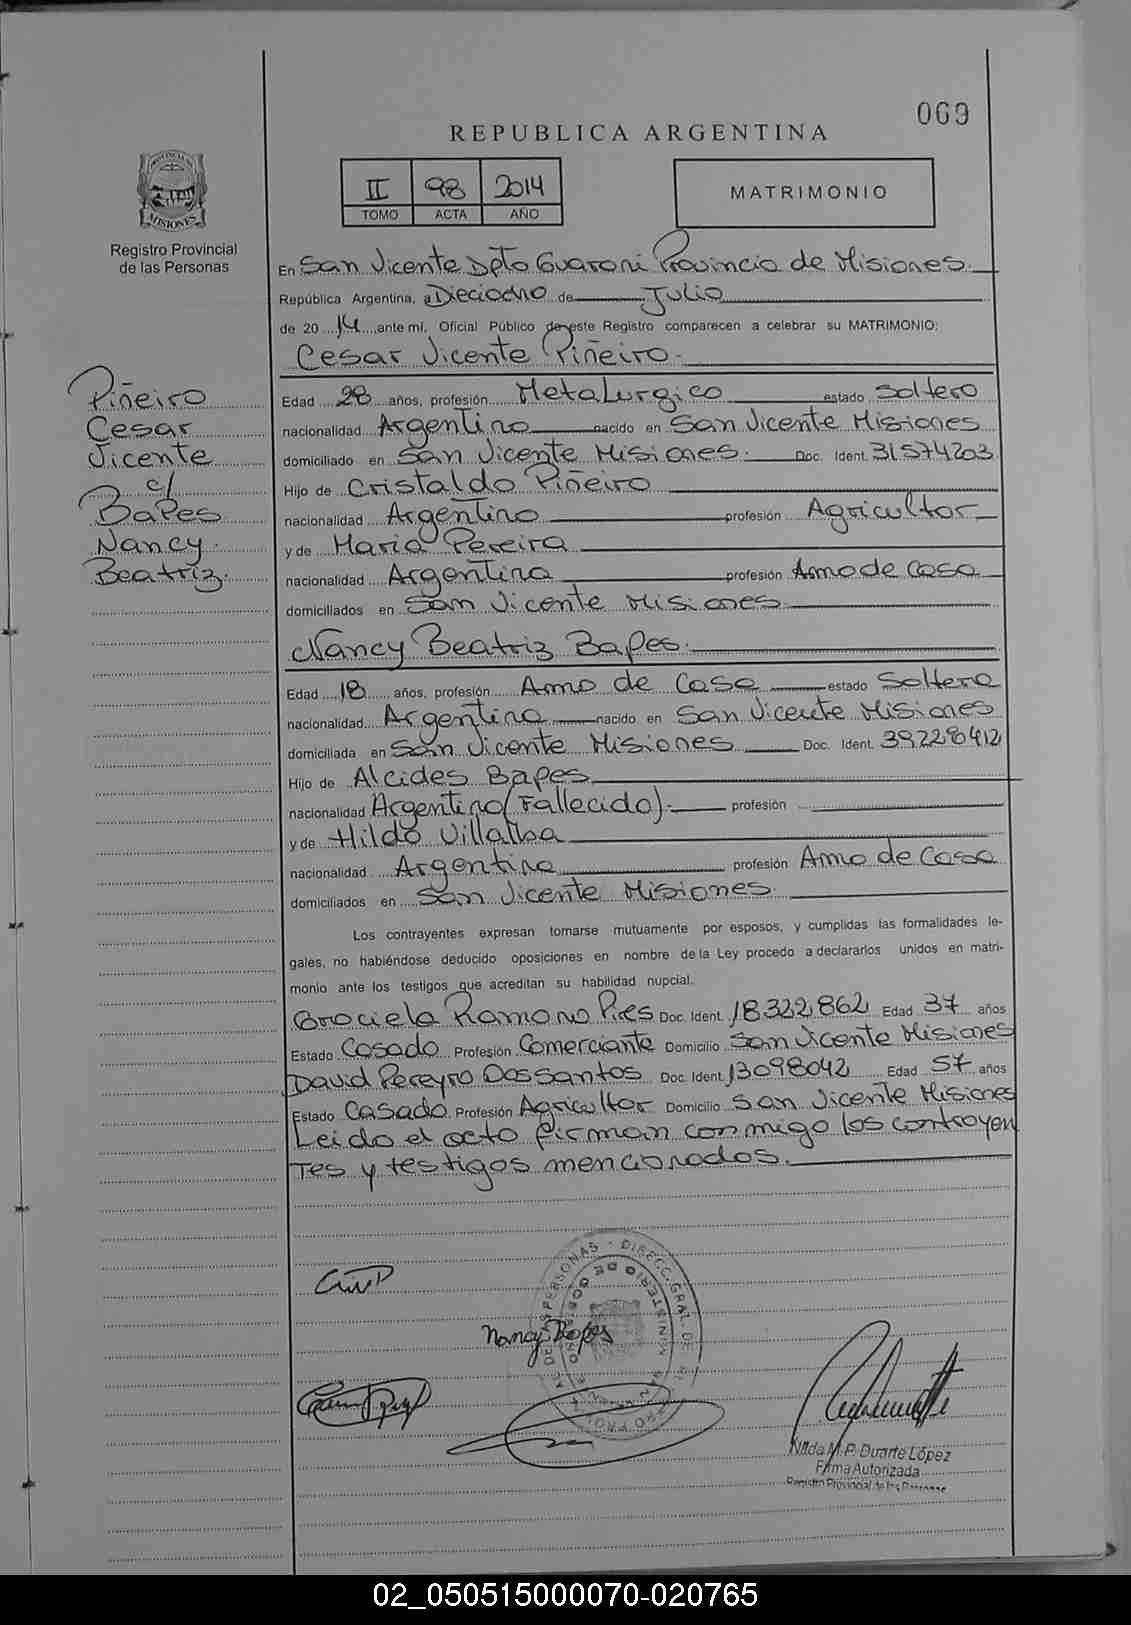 069
REPUBLICA ARGENTINA
II 98 2014
TOMO ACTA AÑO
MATRIMONIO
PROVINCIA DE MISIONES
Registro Provincial
de las Personas
Piñeiro
Cesar
Vicente
c/
Bapes
Nancy
Beatriz.
En San Vicente Dpto Guarani Provincia de Misiones.
República Argentina, a Dieciocho de Julio
de 20 14 ante mí, Oficial Público de este Registro comparecen a celebrar su MATRIMONIO:
Cesar Vicente Piñeiro.
Edad 28 años, profesión Metalurgico estado Soltero
nacionalidad Argentino nacido en San Vicente Misiones
domiciliado en San Vicente Misiones. Doc. Ident. 31574203
Hijo de Cristaldo Piñeiro
nacionalidad Argentino profesión Agricultor
y de Maria Pereira
nacionalidad Argentina profesión Ama de Casa
domiciliados en San Vicente Misiones.
Nancy Beatriz Bapes.
Edad 18 años, profesión Ama de Casa estado Soltera
nacionalidad Argentina nacido en San Vicente Misiones
domiciliada en San Vicente Misiones Doc. Ident. 39228412
Hijo de Alcides Bapes
nacionalidad Argentino (Fallecido). profesión
y de Hilda Villalba
nacionalidad Argentina profesión Ama de Casa
domiciliados en San Vicente Misiones.
Los contrayentes expresan tomarse mutuamente por esposos, y cumplidas las formalidades le-
gales, no habiéndose deducido oposiciones en nombre de la Ley procedo a declararlos unidos en matri-
monio ante los testigos que acreditan su habilidad nupcial.
Graciela Ramona Pires Doc. Ident. 18322862 Edad 37 años
Estado Casado Profesión Comerciante Domicilio San Vicente Misiones
David Pereyra Dos Santos Doc. Ident. 13098042 Edad 57 años
Estado Casado Profesión Agricultor Domicilio San Vicente Misiones
Leido el acto firman con migo los contrayen
tes y testigos mencionados.
Nancy Bapes
Nilda M. P. Duarte López
Firma Autorizada
Registro Provincial de las Personas
02_050515000070-020765